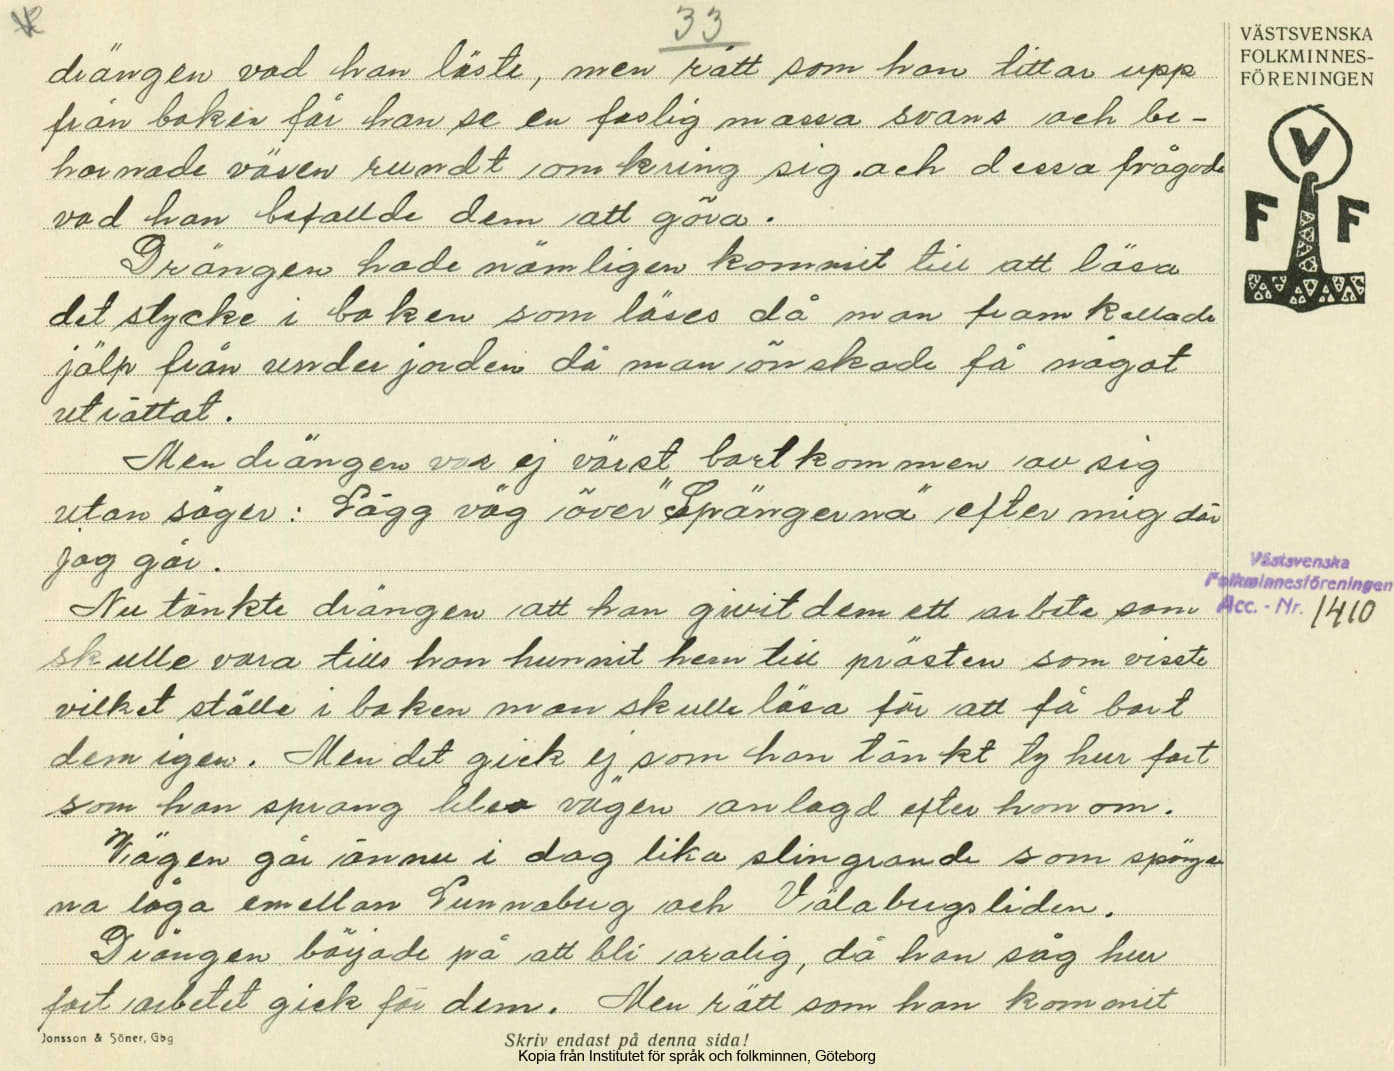 33
drängen vad han läste, men rätt som han tittar upp
från boken får han se en faslig massa svans och be-
hornade väsen rundt omkring sig. och dessa frågade
vad han befallde dem att göra.
Drängen hade nämligen kommit till att läsa
det stycke i boken som läses då man framkallade
jälp från underjorden då man önskade få något
uträttat.
Men drängen var ej värst bortkommen av sig
utan säger: Lägg väg över "Spängerna" efter mig där
jag går.
Nu tänkte drängen att han givit dem ett arbete som
skulle vara tills han hunnit hem till prästen som visste
vilket ställe i boken man skulle läsa för att få bort
dem igen. Men det gick ej som han tänkt ty hur fort
som han sprang blev vägen anlagd efter honom.
Vägen går ännu i dag lika slingrande som spänger
na låga emellan Lunnabug och Välabugsliden.
Drängen började på att bli orolig, då han såg hur
fort arbetet gick för dem. Men rätt som han kommit
Jonsson & Söner, Gbg
Skriv endast på denna sida!
Kopia från Institutet för språk och folkminnen, Göteborg
VÄSTSVENSKA
FOLKMINNES-
FÖRENINGEN
V
F F
Västsvenska
Folkminnesföreningen
Acc. - Nr. 1410